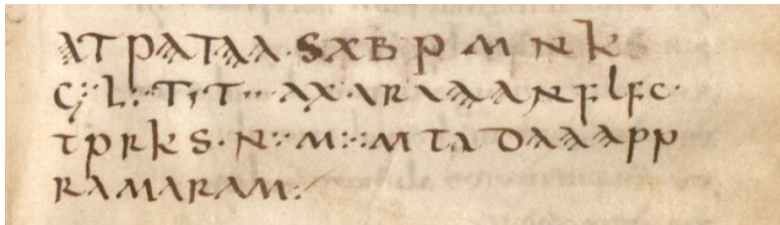 ATPATAA·SXBPMNK
C;·L:·T,T··AX·ARAAANFLFC·
TPRKS·N:·M:·:MTADAAAPP
RAMARAM: